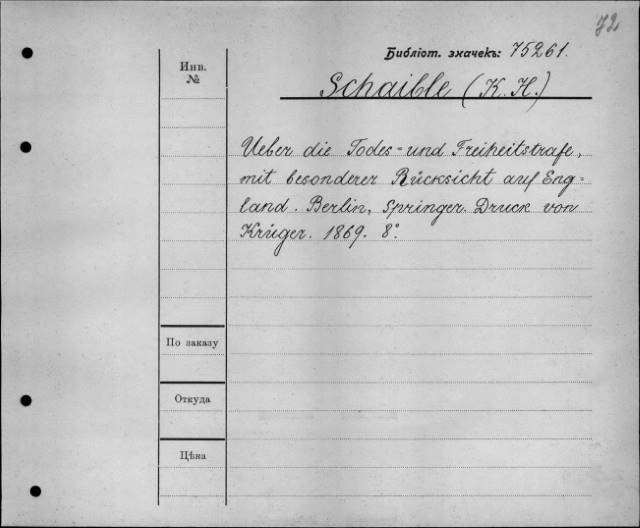 72
Библіот. значекъ: 75261.
Инв.
№
Schaible (K. H.)
Ueber die Todes= und Freiheitstrafe,
mit besonderer Rücksicht auf Eng=
land. Berlin, Springer. Druck von
Krüger. 1869. 8°.
По заказу
Откуда
Цѣна